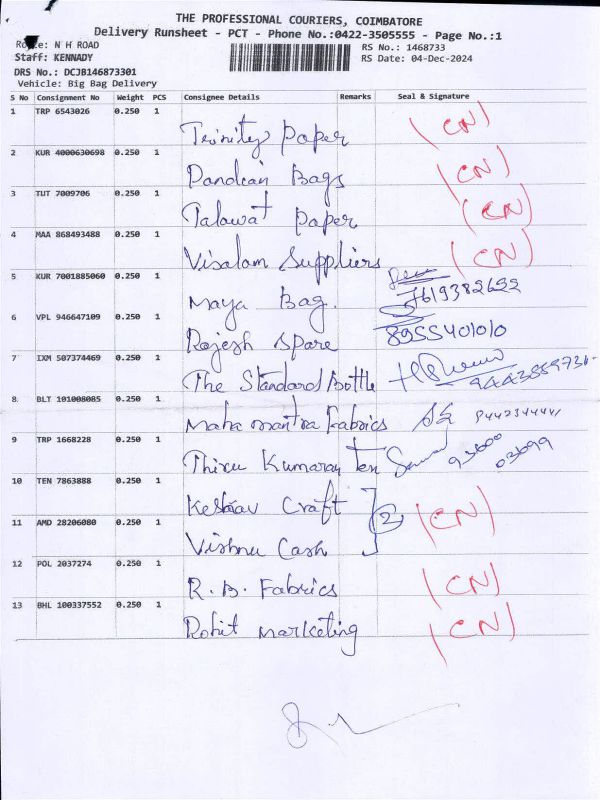 THE PROFESSIONAL COURIERS, COIMBATORE
Delivery Runsheet - PCT - Phone No.:0422-3505555 - Page No.:1
Route: N H ROAD RS No.: 1468733
Staff: KENNADY RS Date: 04-Dec-2024
DRS No.: DCJB146873301
Vehicle: Big Bag Delivery
S No Consignment No Weight PCS Consignee Details Remarks Seal & Signature
1 TRP 6543026 0.250 1
Trinity Paper (CN)
2 KUR 4000630698 0.250 1
Pandean Bags (CN)
3 TUT 7009706 0.250 1
Talawat Paper (CN)
4 MAA 868493488 0.250 1
Visalam Suppliers (CN)
5 KUR 7001885060 0.250 1
Maya Bag. 7619382652
6 VPL 946647109 0.250 1
Rajesh Spare 8955401010
7 IXM 507374469 0.250 1
The Standard Bottle
8 BLT 101008085 0.250 1
Maha mantra Fabrics
9 TRP 1668228 0.250 1
Thiru Kumaran Ten 93600 03699
10 TEN 7863888 0.250 1
Keshav Craft (2) (CN)
11 AMD 28206080 0.250 1
Vishnu Cash
12 POL 2037274 0.250 1
R. B. Fabrics (CN)
13 BHL 100337552 0.250 1
Rohit Marketing (CN)